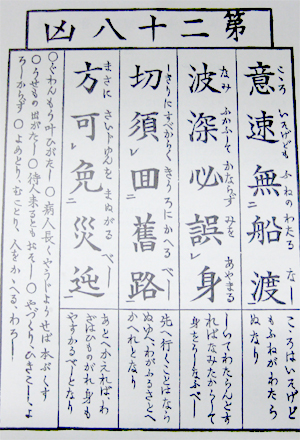 第二十八凶
こゝろ いそげども ふねのわたる なし
意速無船渡
なみ ふかふして かならず みを あやまる
波深必誤身
しきりにすべからく きうろにかへる べし
切須囬舊路
まさに さいじゆんを まぬがる べし
方可免災迍
こゝろはいそげど
もふねがわたら
ぬなり
しゐてわたらんとす
ればなみたかうして
身をうしなふべし
先へ行くことはなら
ぬゆへ、わがふるさとへ
かへれとなり
あとへかえればわ
ざはひものがれ身も
やすかるべしとなり
○ぐわんもう叶ひがたし ○病人長くやうじようせば本ぷくす
○うせもの出がたし ○待人来るともおそし ○やづくり、ひきこし、よ
ろしからず ○よめとり、むことり、人をかゝへる、わろし